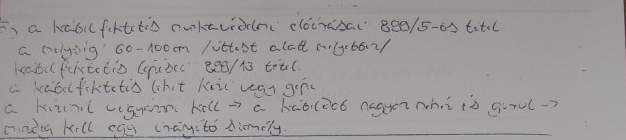 a kábelfektetés munkavédelmi előírásai 800/5-ös tétel
a mélység 60-100cm /úttest alatt mélyebben/
kábelfektetés lépései 800/13 tétel.
a kábelfektetés lehet kézi vagy gépi
a kézinél vigyázni kell → a kábeldob nagyon nehéz és gurul →
mindig kell egy irányító személy.